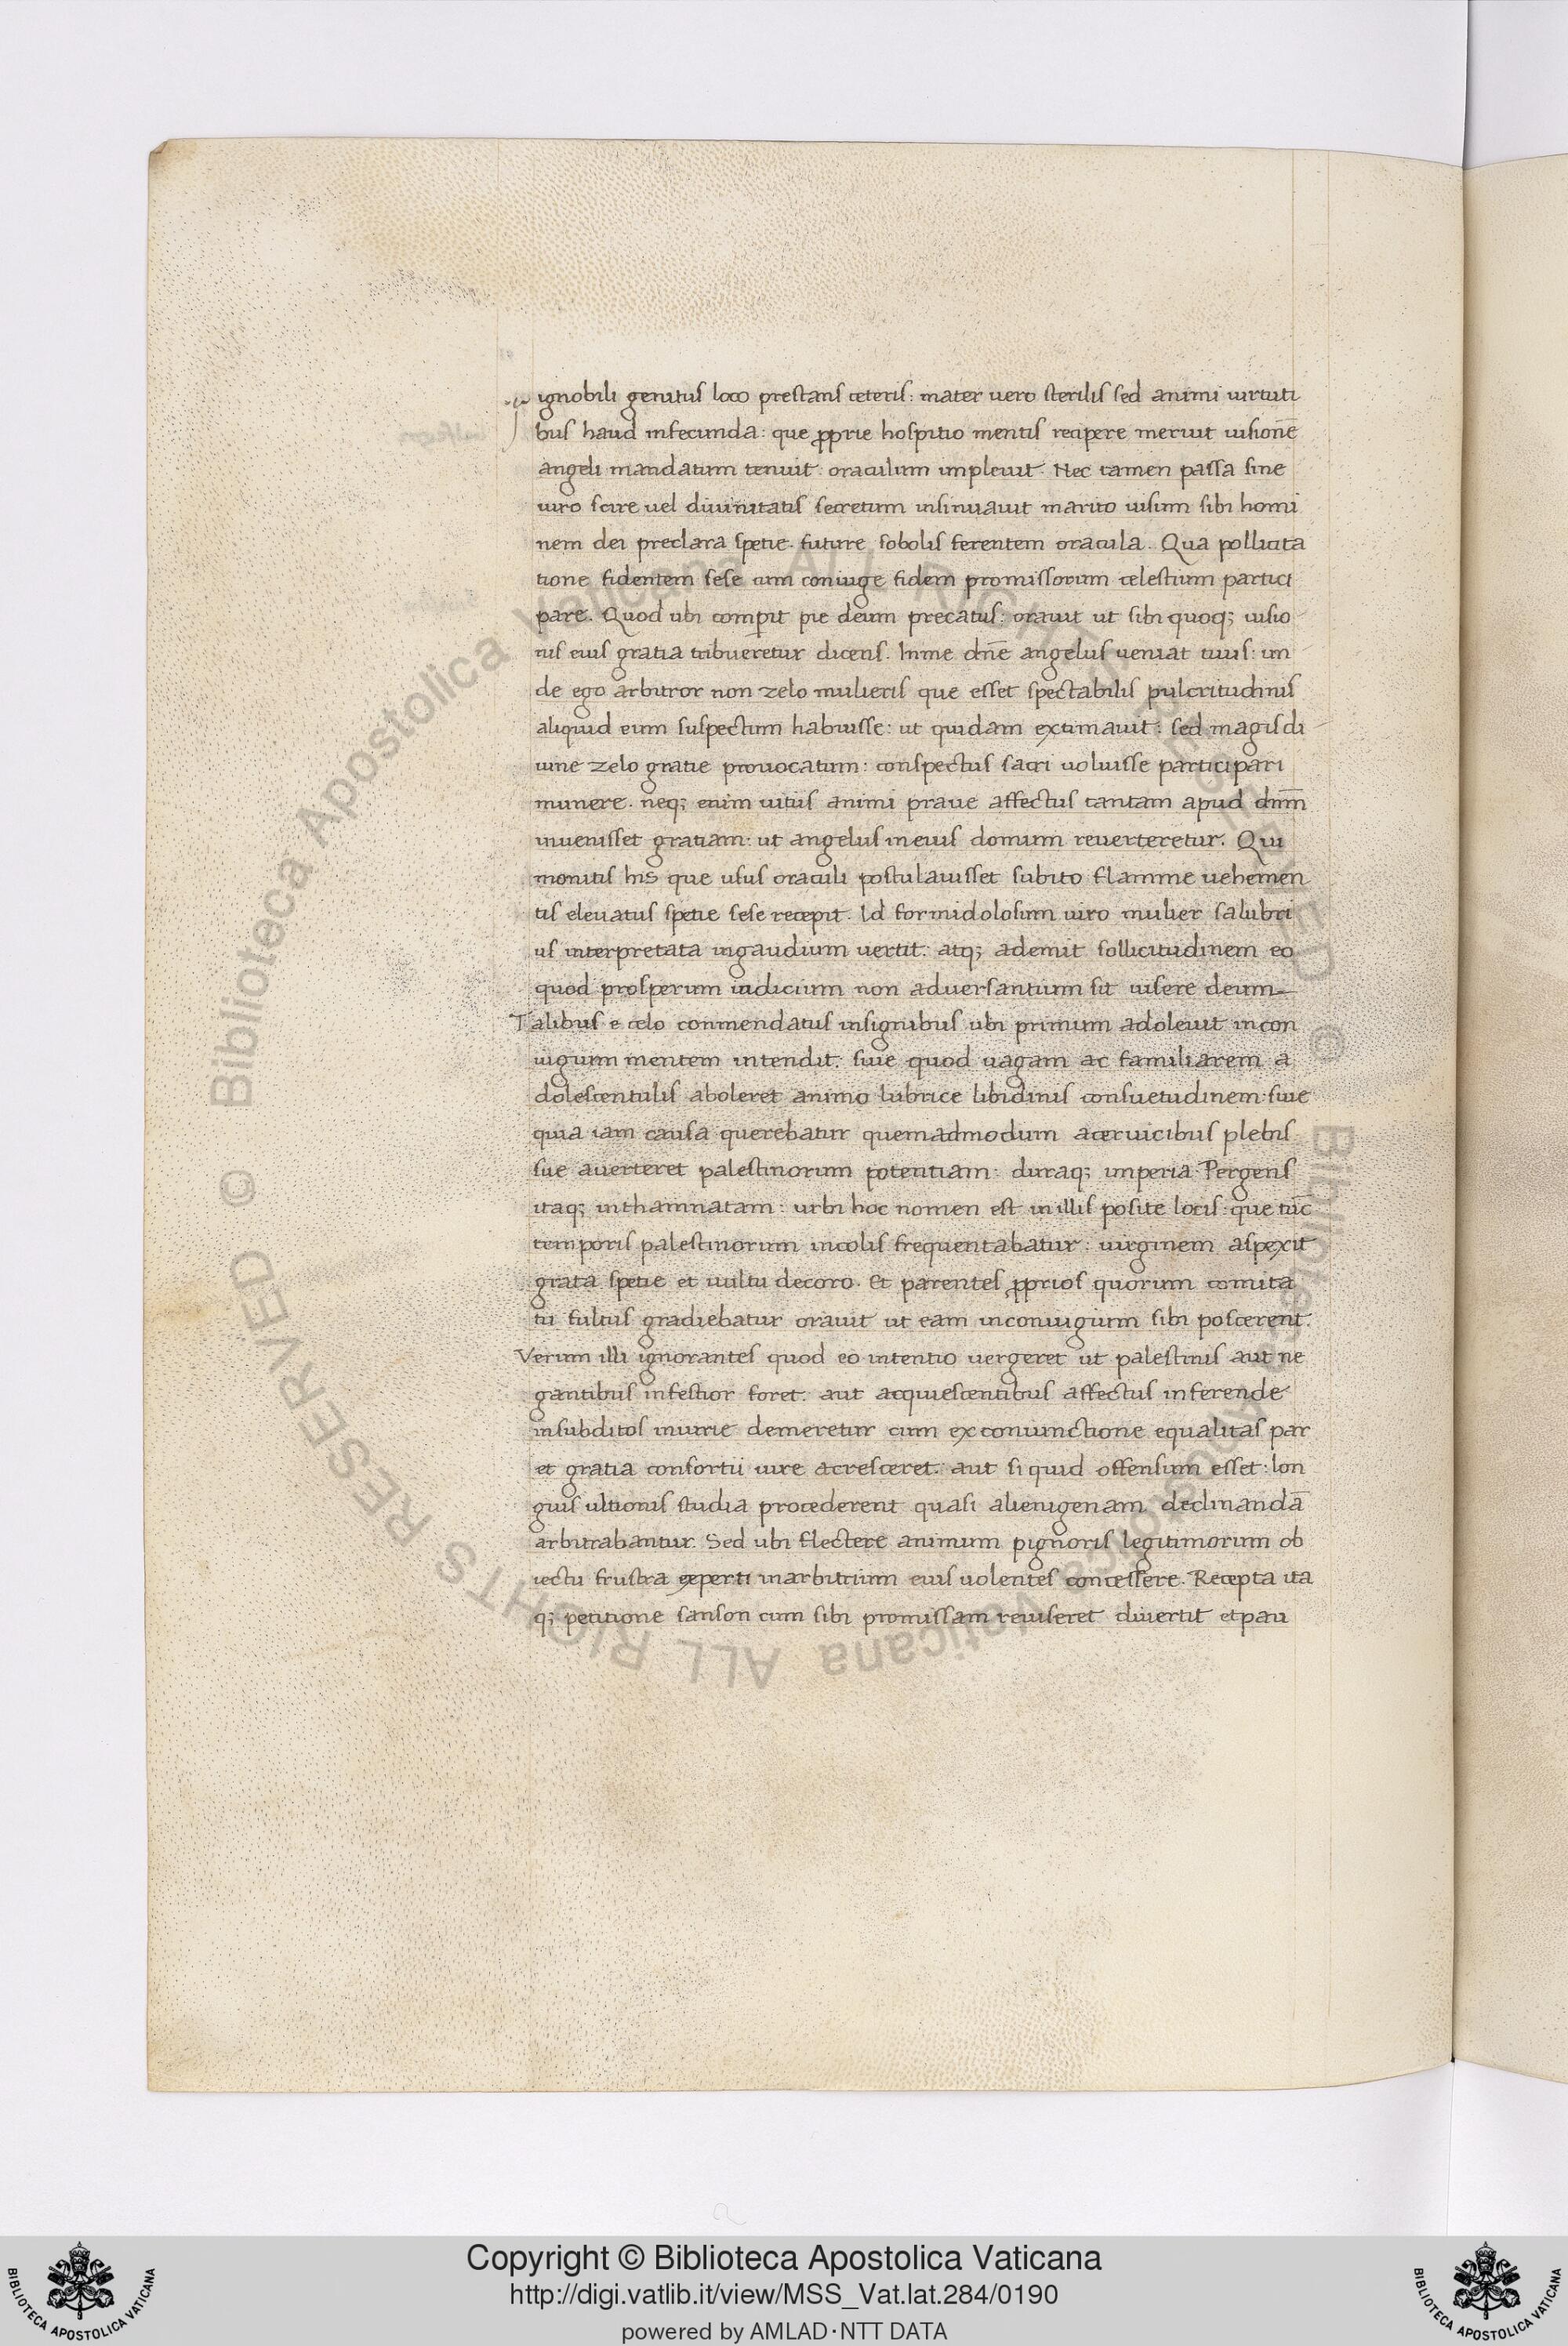 ignobili genitus loco prestans ceteris: mater vero sterilis sed animi virtuti
bus haud infecunda: que pprie hospitio mentis recipere meruit visionē
angeli mandatum tenuit: oraculum implevit. Nec tamen passa sine
viro scire vel divinitatis secretum insinuavit marito visum sibi homi
nem dei preclara spetie. future sobolis ferentem oracula. Qua pollicita
tione fidentem sese cum coniuge fidem promissorum celestium partici
pare. Quod ubi comperit pie deum precatus: oravit ut sibi quoq; visio
nis eius gratia tribueretur dicens. In me dn̄e angelus veniat tuus: un
de ego arbitror non zelo mulieris que esset spectabilis pulcritudinis
aliquid eum suspectum habuisse: ut quidam extimavit: sed magis di
vine zelo gratie provocatum: conspectus sacri voluisse participari
munere. neq; enim vitiis animi prave affectus tantam apud dn̄m
invenisset gratiam: ut angelus in eius domum reverteretur. Qui
monitis his que usus oraculi postulavisset subito flamme vehemen
tis elevatus spetie sese recepit. Id formidolosum viro mulier salubri
us interpretata in gaudium vertit: atq; ademit sollicitudinem eo
quod prosperum iudicium non adversantium sit visere deum
Talibus e celo conmendatus insignibus ubi primum adolevit in con
iugium mentem intendit: sive quod vagam ac familiarem a
dolescentulis aboleret animo lubrice libidinis consuetudinem: sive
quia iam causa querebatur quemadmodum a cervicibus plebis
sue averteret palestinorum potentiam: duraq; imperia. Pergens
itaq; in thamnatam: urbi hoc nomen est in illis posite locis: que tūc
temporis palestinorum incolis frequentabatur: virginem aspexit
grata spetie et vultu decoro. Et parentes pprios quorum comita
tu fultus gradiebatur oravit ut eam in coniugium sibi poscerent.
Verum illi ignorantes quod eo intentio vergeret ut palestinis aut ne
gantibus infestior foret: aut acquiescentibus affectus inferende
in subditos iniurie demeretur cum ex coniunctione equalitas par
et gratia consortii iure acresceret: aut si quid offensum esset: lon
gius ultionis studia procederent quasi alienigenam declinandā
arbitrabantur. Sed ubi flectere animum pignoris legitimorum ob
iectu frustra experti in arbitrium eius volentes concessere. Recepta ita
q; petitione sanson cum sibi promissam reviseret divertit et pau
Copyright © Biblioteca Apostolica Vaticana
http://digi.vatlib.it/view/MSS_Vat.lat.284/0190
powered by AMLAD·NTT DATA
BIBLIOTECA APOSTOLICA VATICANA
BIBLIOTECA APOSTOLICA VATICANA
Biblioteca Apostolica Vaticana ALL RIGHTS RESERVED ©
Biblioteca Apostolica Vaticana ALL RIGHTS RESERVED ©